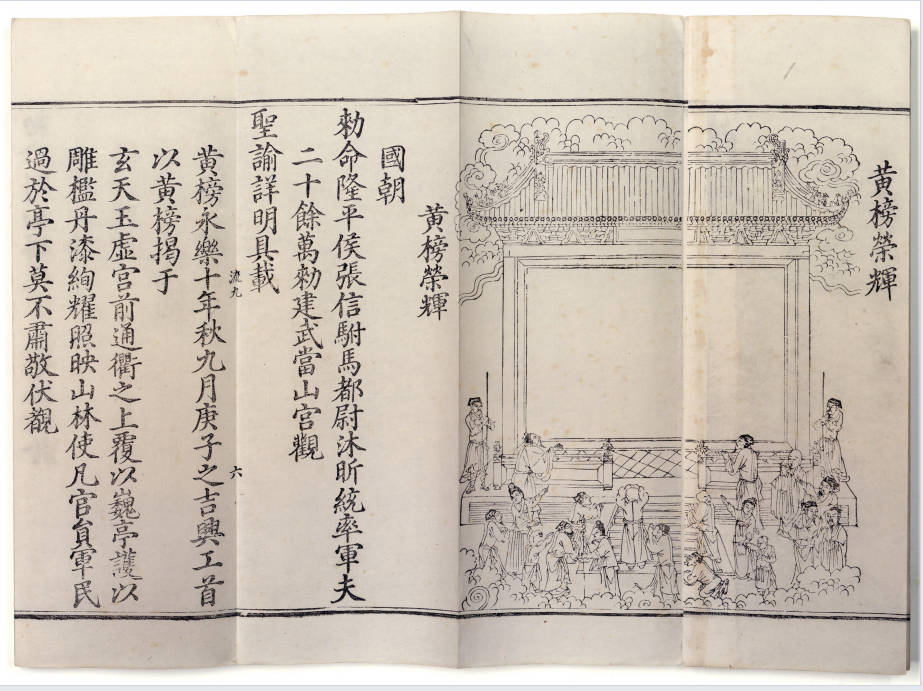 黃榜榮輝
黃榜榮輝
國朝
勑命隆平侯張信駙馬都尉沐昕統率軍夫
二十餘萬勑建武當山宮觀
聖諭詳明具載
流九
六
黃榜永樂十年秋九月庚子之吉興工首
以黃榜揭于
玄天玉虛宮前通衢之上覆以巍亭護以
雕檻丹漆絢耀照映山林使凡官員軍民
過於亭下莫不肅敬伏覩